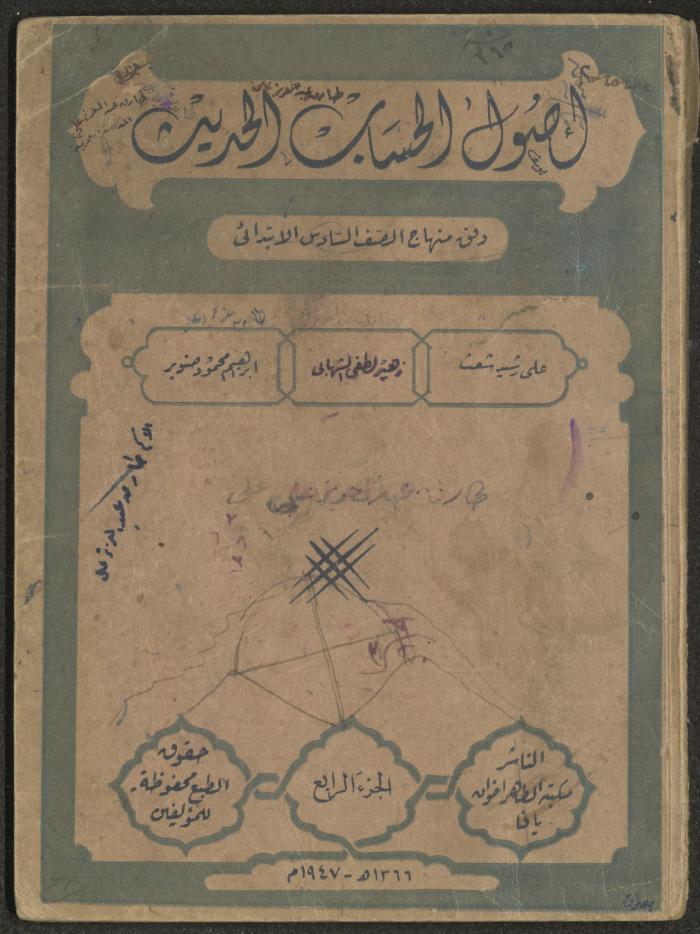 اصول الحساب الحديث
وفق منهاج الصف السادس الابتدائي
علي رشيد شعث
زهير لطفي الشهابي
ابراهيم محمود صنوبر
طارق عبد العزيز علي
الناشر
مكتبة الطاهر اخوان
يافا
الجزء الرابع
حقوق
الطبع محفوظة
للمؤلفين
١٣٦٦ه - ١٩٤٧م